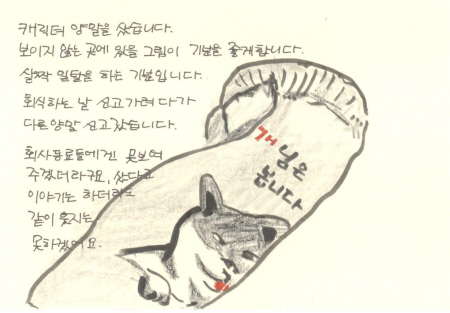 캐릭터 양말을 샀습니다.
보이지 않는 곳에 있을 그림이 기분을 좋게합니다.
살짝 일탈을 하는 기분입니다.
회식하는 날 신고가려다가
다른양말 신고갔습니다.
회사동료들에겐 못보여
주겠더라구요, 샀다고
이야기는 하더라도
같이 웃지는
못하겠어요.
개님은
봅니다